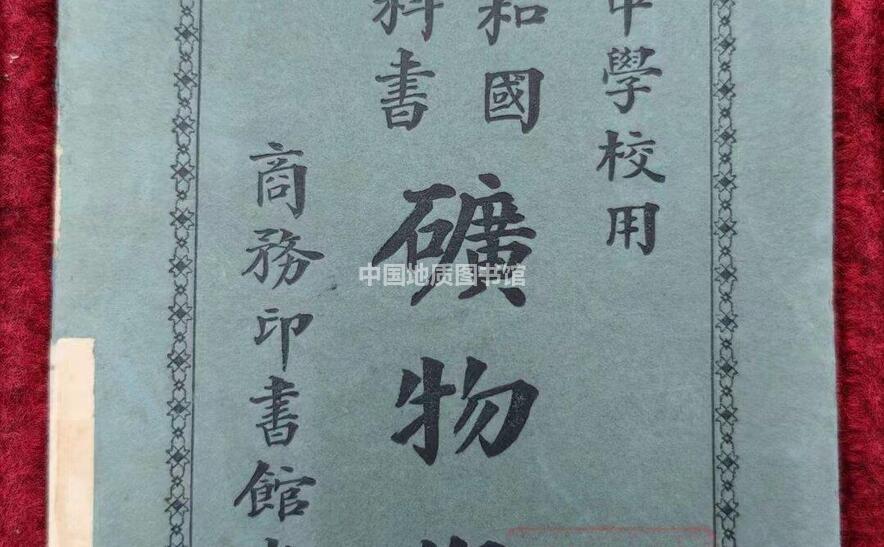 中學校用
和國
科書
礦物
商務印書館
中国地质图书馆